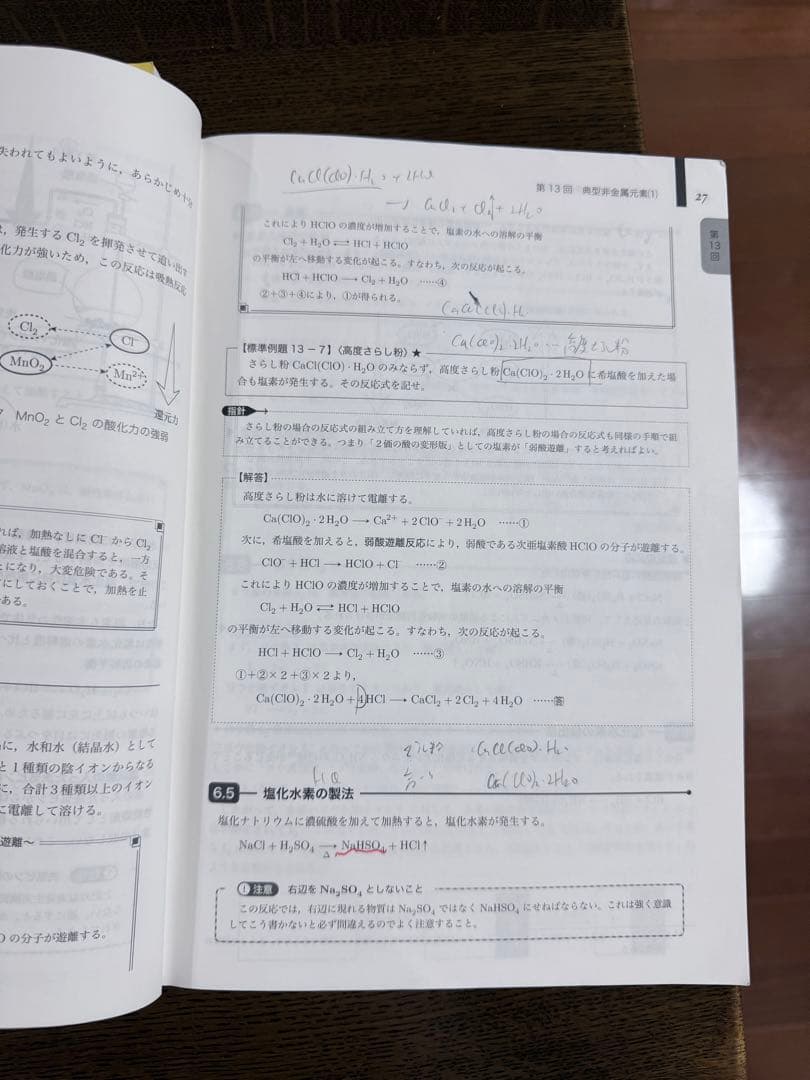 失われてもよいように，あらかじめ十分
，発生する Cl₂ を揮発させて追い出す
化力が強いため，この反応は吸熱反応
Cl₂
Cl⁻
MnO₂
Mn²⁺
還元力
7 MnO₂ と Cl₂ の酸化力の強弱
れば，加熱なしに Cl⁻ から Cl₂
溶液と塩酸を混合すると，一方
とになり，大変危険である。そ
にしておくことで，加熱を止
ある。
に，水和水（結晶水）として
と 1 種類の陰イオンからなる
に，合計 3 種類以上のイオン
に電離して溶ける。
遊離～
O の分子が遊離する。
CaCl(ClO)・H₂
→ CaCl₂ + Cl₂↑ + 2H₂O
第 13 回 典型非金属元素(1)
27
第13回
これにより HClO の濃度が増加することで，塩素の水への溶解の平衡
Cl₂ + H₂O ⇄ HCl + HClO
の平衡が左へ移動する変化が起こる。すなわち，次の反応が起こる。
HCl + HClO → Cl₂ + H₂O ……④
②+③+④により，①が得られる。
CaCl(ClO)・H₂
Ca(ClO)₂・2H₂O … 高度さらし粉
【標準例題 13 − 7】〈高度さらし粉〉★
さらし粉 CaCl(ClO)・H₂O のみならず，高度さらし粉 Ca(ClO)₂・2H₂O に希塩酸を加えた場
合も塩素が発生する。その反応式を記せ。
指針
さらし粉の場合の反応式の組み立て方を理解していれば，高度さらし粉の場合の反応式も同様の手順で組
み立てることができる。つまり「2 価の酸の変形版」としての塩素が「弱酸遊離」すると考えればよい。
【解答】
高度さらし粉は水に溶けて電離する。
Ca(ClO)₂・2H₂O → Ca²⁺ + 2ClO⁻ + 2H₂O ……①
次に，希塩酸を加えると，弱酸遊離反応により，弱酸である次亜塩素酸 HClO の分子が遊離する。
ClO⁻ + HCl → HClO + Cl⁻ ……②
これにより HClO の濃度が増加することで，塩素の水への溶解の平衡
Cl₂ + H₂O ⇄ HCl + HClO
の平衡が左へ移動する変化が起こる。すなわち，次の反応が起こる。
HCl + HClO → Cl₂ + H₂O ……③
①+②×2+③×2 より，
Ca(ClO)₂・2H₂O + 4HCl → CaCl₂ + 2Cl₂ + 4H₂O ……答
さらし粉 CaCl(ClO)・H₂
Ca(ClO)₂・2H₂O
6.5 塩化水素の製法
塩化ナトリウムに濃硫酸を加えて加熱すると，塩化水素が発生する。
NaCl + H₂SO₄ →Δ NaHSO₄ + HCl↑
! 注意 右辺を Na₂SO₄ としないこと
この反応では，右辺に現れる物質は Na₂SO₄ ではなく NaHSO₄ にせねばならない。これは強く意識
してこう書かないと必ず間違えるのでよく注意すること。